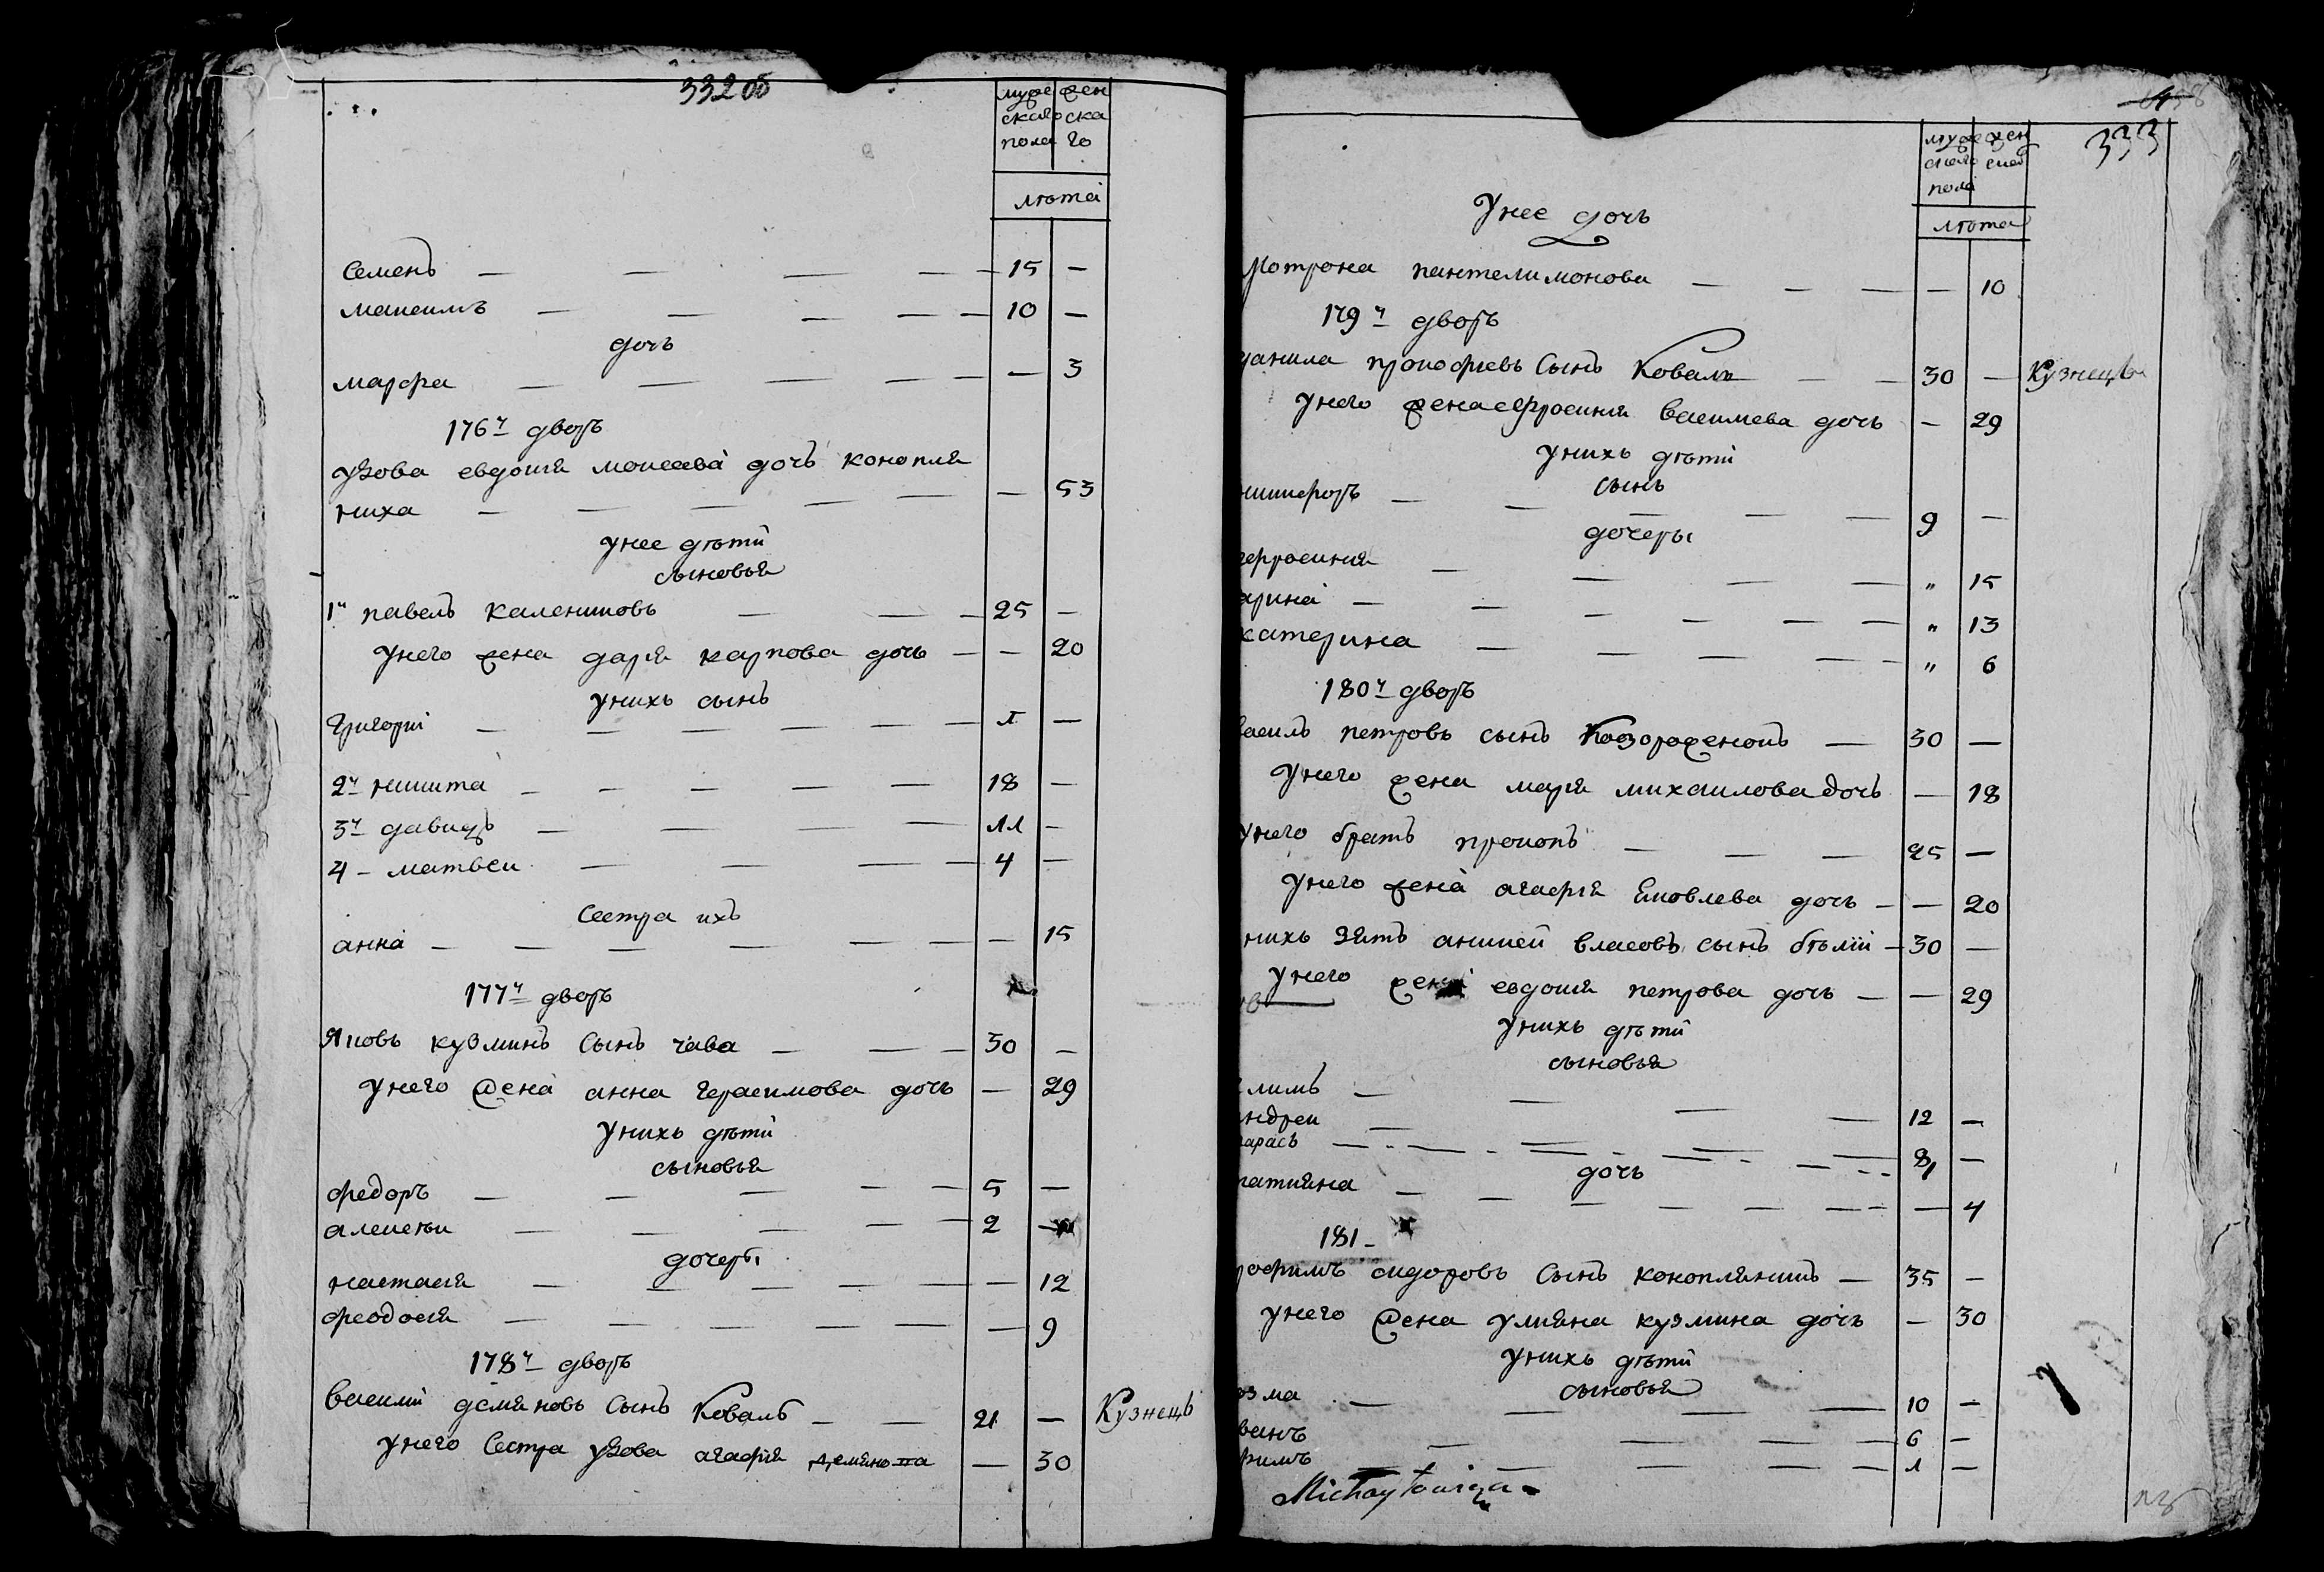 332 об
муже жен
скаго ска
пола го
лѣта
Семенъ — — — — 15 —
максимъ — — — — 10 —
дочь
марфа — — — — — 3
176й дворъ
удова евдокия моисеева дочь конопля
ниха — — — — — — 53
унее дѣти
сыновья
1й павелъ калениковъ — — 25 —
унего жена дария карпова дочь — — 20
унихъ сынъ
Григорий — — — — — 1 —
2й никита — — — — — 18 —
3й давидъ — — — — 11 —
4 - матвеи — — — 4 —
Сестра ихъ
анна — — — — — — — 15
177й дворъ
Яковъ кузминъ Сынъ чава — — 30 —
унего жена анна Герасимова дочь — 29
унихъ дѣти
сыновья
федоръ — — — — — 5 —
алексѣи — — — — — 2 —
дочеры
настасия — — — — — — 12
феодосия — — — — — — 9
178й дворъ
василий демяновъ Сынъ Коваль — — 21 — Кузнецъ
унего Сестра удова агафия демянова — 30
333
муже жен
скаго ской
пола
лѣта
Унее дочь
Мотрона пантелимонова — — — — 10
179й дворъ
данила прокофиевъ Сынъ Коваль — — 30 — Кузнецъ
унего жена ефросиния василиева дочь — 29
унихъ дѣти
сынъ
никифоръ — — — — — 9 —
дочеры
ефросиния — — — — " 15
арина — — — — — — " 13
катерина — — — — — " 6
180й дворъ
василь петровъ сынъ Козороженокъ — 30 —
унего жена мария михаилова дочь — 18
унего братъ прокопъ — — — 25 —
унего жена агафия Яковлева дочь — — 20
нихъ зять аникей власовъ сынъ бѣлий — 30 —
унего жена евдокия петрова дочь — — 29
унихъ дѣти
сыновья
климъ — — — — 12 —
андреи — — — — 8 —
тарасъ — — — — 1
дочь
татияна — — — — — — — 4
181 -
рофимъ сидоровъ Сынъ конопляникъ — 35 —
унего жена улияна кузмина дочь — 30
унихъ дѣти
сыновья
озма — — — — 10 —
ванъ — — — — 6 —
фимъ — — — — 1 —